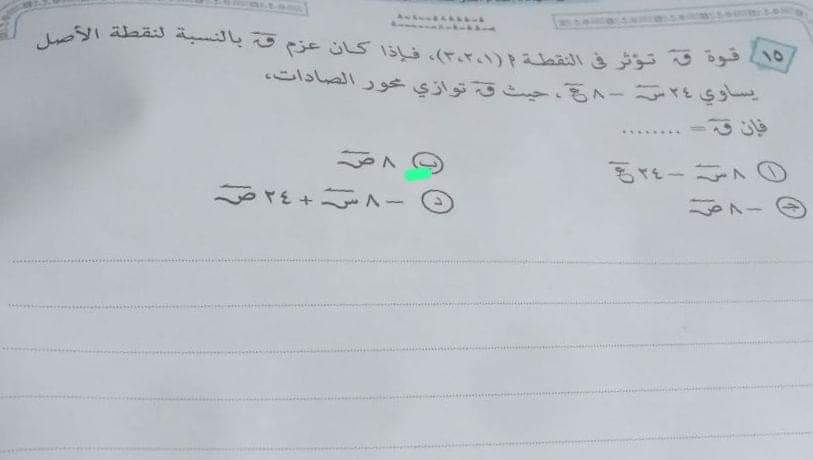 ١٥ قوة ق تؤثر فى النقطة م (١،٢،٣)، فإذا كان عزم ق بالنسبة لنقطة الأصل
يساوي ٢٤ س − ٨ ع ، حيث ق توازي محور الصادات،
فإن ق = ........
أ ٨ س − ٢٤ ع
ب ٨ ص
ج −٨ ص
د −٨ س + ٢٤ ص